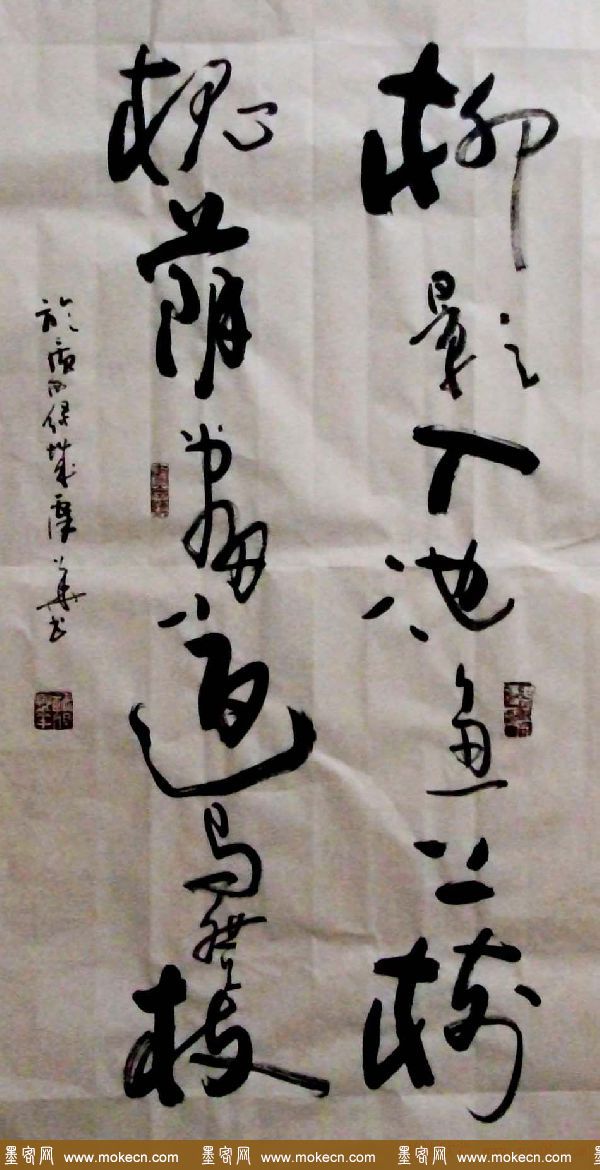 柳影入池鱼上树
槐荫當道馬登枝
於廣西绿城陳華书
墨客网 www.mokecn.com 墨客网 www.mokecn.com 墨客网 www.mokecn.com